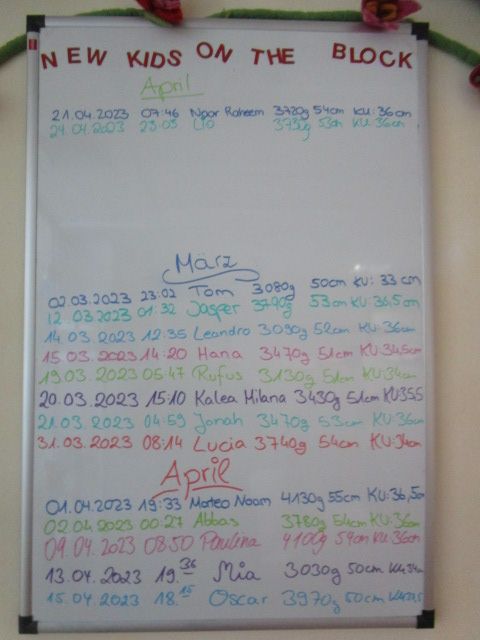 NEW KIDS ON THE BLOCK
April
21.04.2023 07:46 Noor Raheem 3720g 54cm KU: 36cm
24.04.2023 23:05 Lio 3730g 53cm KU: 36cm
März
02.03.2023 23:02 Tom 3080g 50cm KU: 33cm
12.03.2023 01:32 Jasper 3790g 53cm KU: 36,5cm
14.03.2023 12:35 Leandro 3090g 52cm KU: 36cm
15.03.2023 14:20 Hana 3470g 51cm KU: 34,5cm
19.03.2023 05:47 Rufus 3130g 51cm KU: 34cm
20.03.2023 15:10 Kalea Milana 3430g 51cm KU 35,5
21.03.2023 04:59 Jonah 3470g 53cm KU: 36cm
31.03.2023 08:14 Lucia 3740g 54cm KU: 34cm
April
01.04.2023 19:33 Mateo Noam 4130g 55cm KU: 36,5cm
02.04.2023 00:27 Abbas 3780g 54cm KU: 36cm
09.04.2023 08:50 Paulina 4100g 54cm KU: 36cm
13.04.2023 19.36 Mia 3030g 50cm KU: 34cm
15.04.2023 18.15 Oscar 3970g 50cm